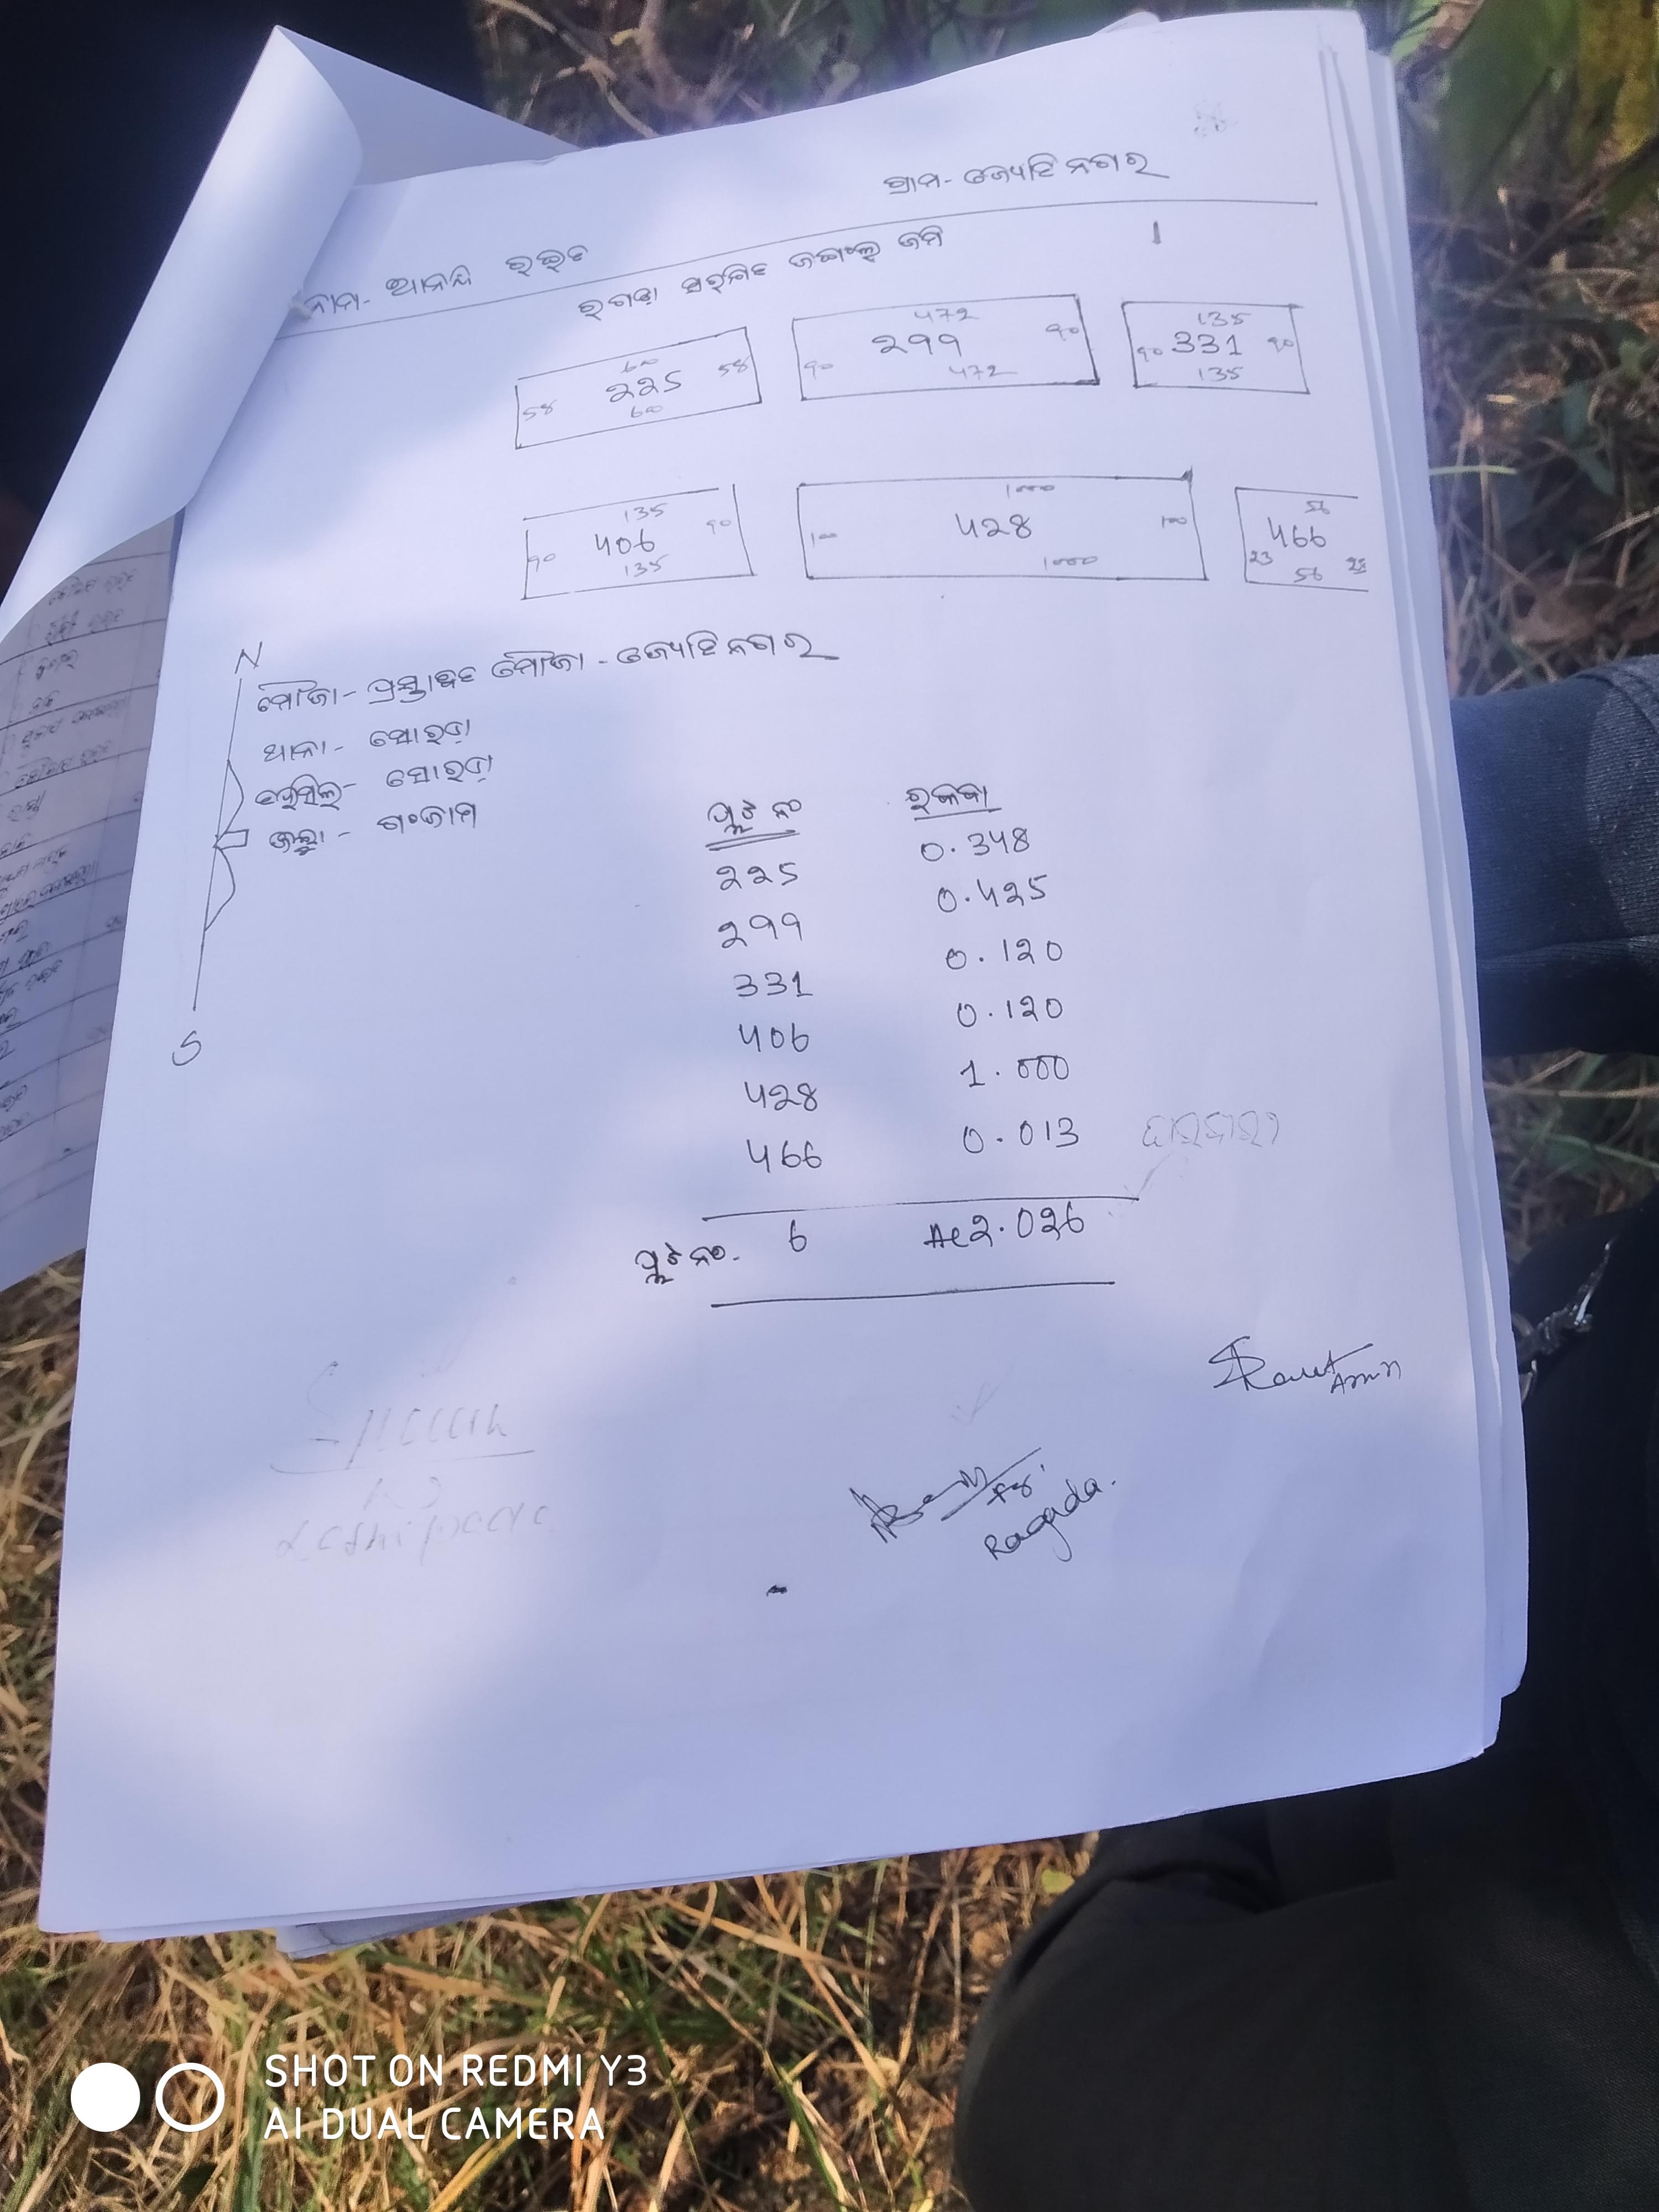 ଗ୍ରାମ- ଜ୍ୟୋତି ନଗର
ନାମ- ଆନନ୍ଦ ରଇତ
ରଗଡ଼ା ସଂରକ୍ଷିତ ଜଙ୍ଗଲ ଜମି
600
58 225 58
600
472
90 299 90
472
135
90 331 90
135
135
90 406 90
135
1000
100 428 100
1000
56
466
23 23
56
N
ମୌଜା- ପ୍ରସ୍ତାବିତ ମୌଜା - ଜ୍ୟୋତି ନଗର
ଥାନା- ସୋରଡ଼ା
ତହସିଲ- ସୋରଡ଼ା
ଜିଲ୍ଲା - ଗଂଜାମ
S
ପ୍ଲଟ ନଂ ରକବା
225 0.348
299 0.425
331 0.120
406 0.120
428 1.000
466 0.013 ଘରବାରୀ
ପ୍ଲଟ ନଂ. 6 Ac 2.026
Rout
Amin
Fr.
Ragada.
SHOT ON REDMI Y3
AI DUAL CAMERA